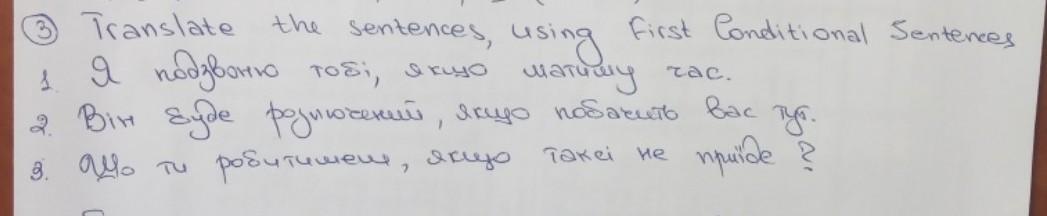 3 Translate the sentences, using First Conditional Sentences
1. Я подзвоню тобі, якщо матиму час.
2. Він буде розлючений, якщо побачить вас тут.
3. Що ти робитимеш, якщо таксі не приїде?